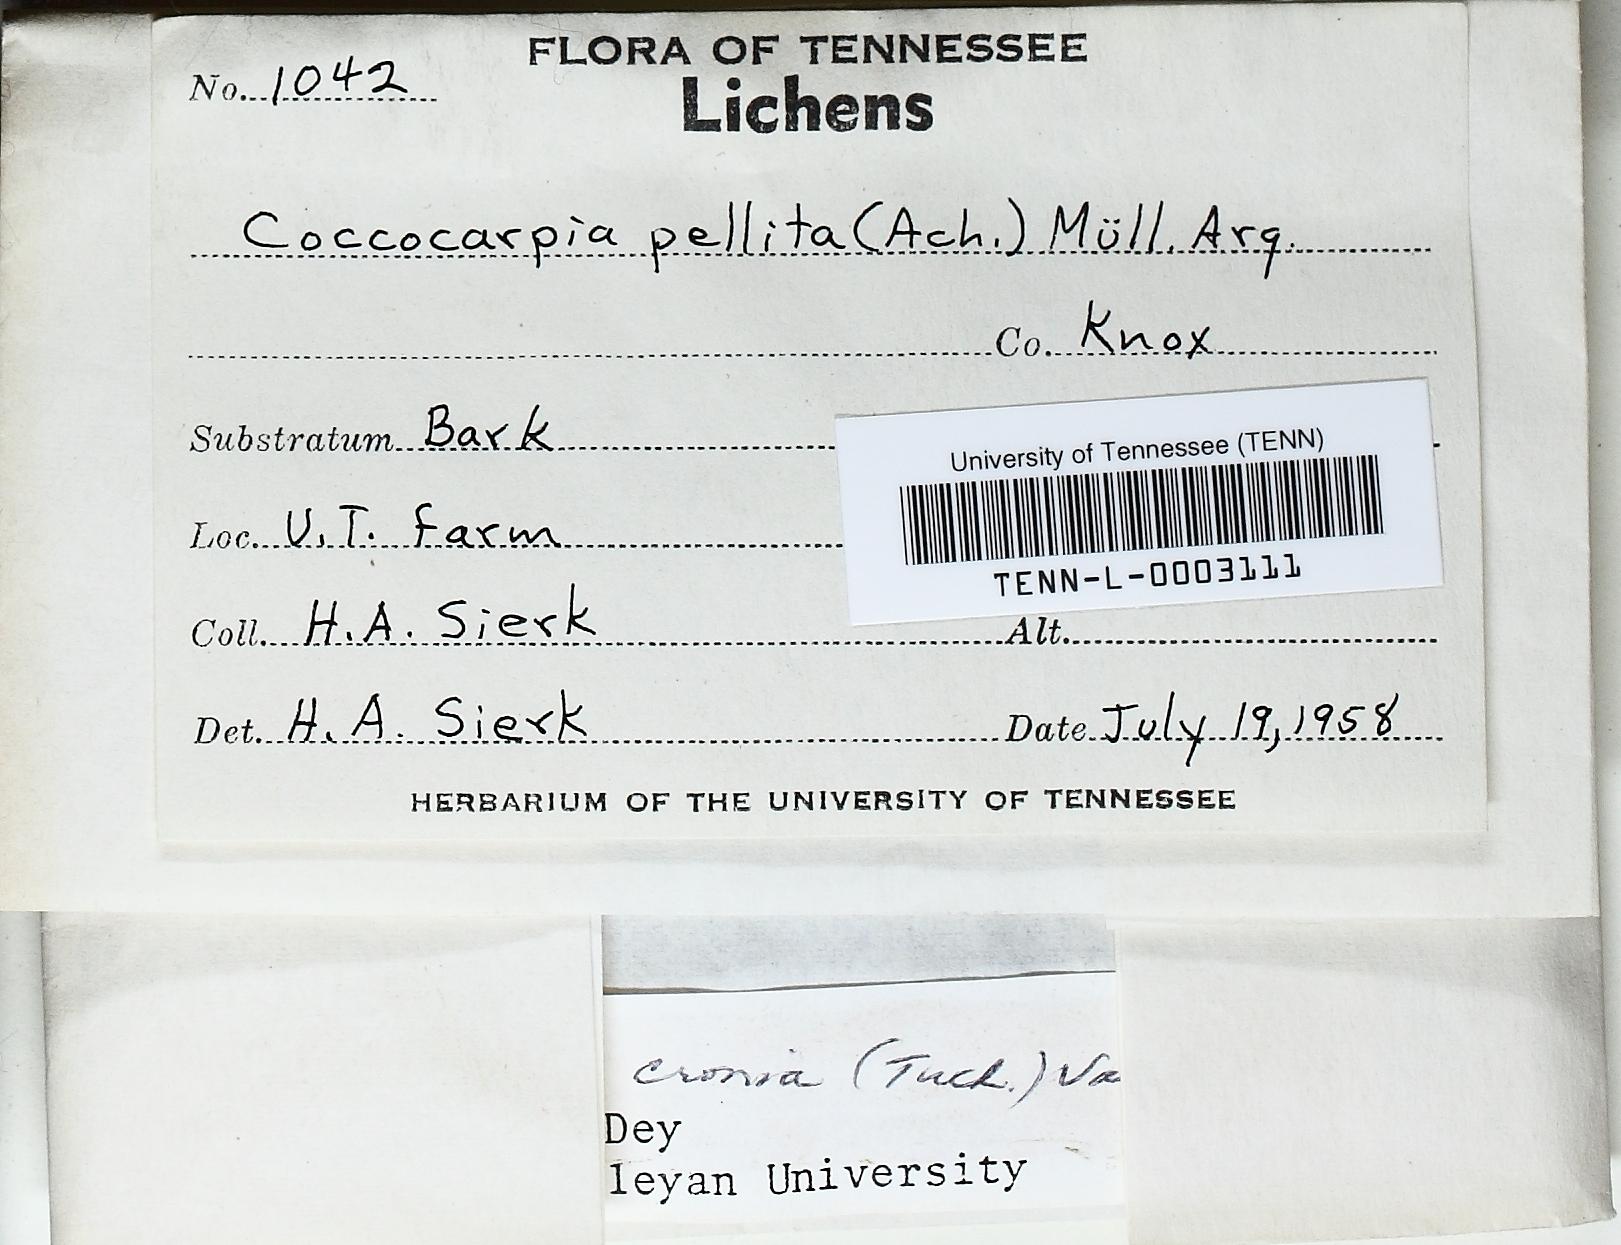 FLORA OF TENNESSEE
No. 1042
Lichens
Coccocarpia pellita (Ach.) Müll. Arg.
Co. Knox
Substratum Bark
University of Tennessee (TENN)
TENN-L-0003111
Loc. U.T. farm
Coll. H.A. Sierk Alt.
Det. H.A. Sierk Date July 19, 1958
HERBARIUM OF THE UNIVERSITY OF TENNESSEE
cronia (Tuck.) Va
Dey
leyan University